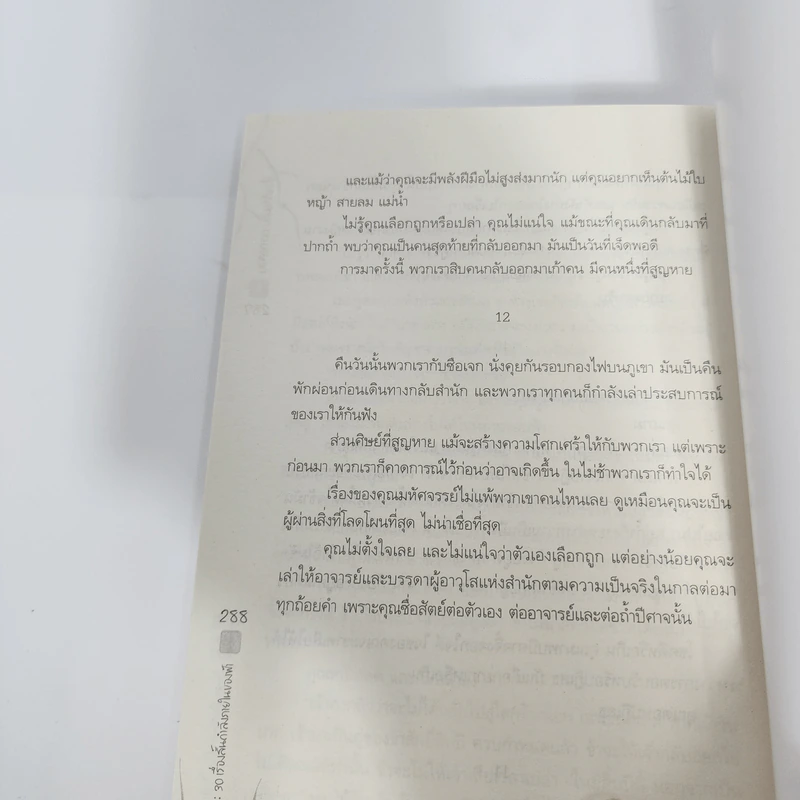 และแม้ว่าคุณจะมีพลังฝีมือไม่สูงส่งมากนัก แต่คุณอยากเห็นต้นไม้ใบ
หญ้า สายลม แม่น้ำ
ไม่รู้คุณเลือกถูกหรือเปล่า คุณไม่แน่ใจ แม้ขณะที่คุณเดินกลับมาที่
ปากถ้ำ พบว่าคุณเป็นคนสุดท้ายที่กลับออกมา มันเป็นวันที่เจ็ดพอดี
การมาครั้งนี้ พวกเราสิบคนกลับออกมาเก้าคน มีคนหนึ่งที่สูญหาย
12
คืนวันนั้นพวกเรากับซือเจก นั่งคุยกันรอบกองไฟบนภูเขา มันเป็นคืน
พักผ่อนก่อนเดินทางกลับสำนัก และพวกเราทุกคนก็กำลังเล่าประสบการณ์
ของเราให้กันฟัง
ส่วนศิษย์ที่สูญหาย แม้จะสร้างความโศกเศร้าให้กับพวกเรา แต่เพราะ
ก่อนมา พวกเราก็คาดการณ์ไว้ก่อนว่าอาจเกิดขึ้น ในไม่ช้าพวกเราก็ทำใจได้
เรื่องของคุณมหัศจรรย์ไม่แพ้พวกเขาคนไหนเลย ดูเหมือนคุณจะเป็น
ผู้ผ่านสิ่งที่โลดโผนที่สุด ไม่น่าเชื่อที่สุด
คุณไม่ตั้งใจเลย และไม่แน่ใจว่าตัวเองเลือกถูก แต่อย่างน้อยคุณจะ
เล่าให้อาจารย์และบรรดาผู้อาวุโสแห่งสำนักตามความเป็นจริงในกาลต่อมา
ทุกถ้อยคำ เพราะคุณซื่อสัตย์ต่อตัวเอง ต่ออาจารย์และต่อถ้ำปีศาจนั้น
288
: 30 เรื่องสั้นกำลังภายในของฟ้า